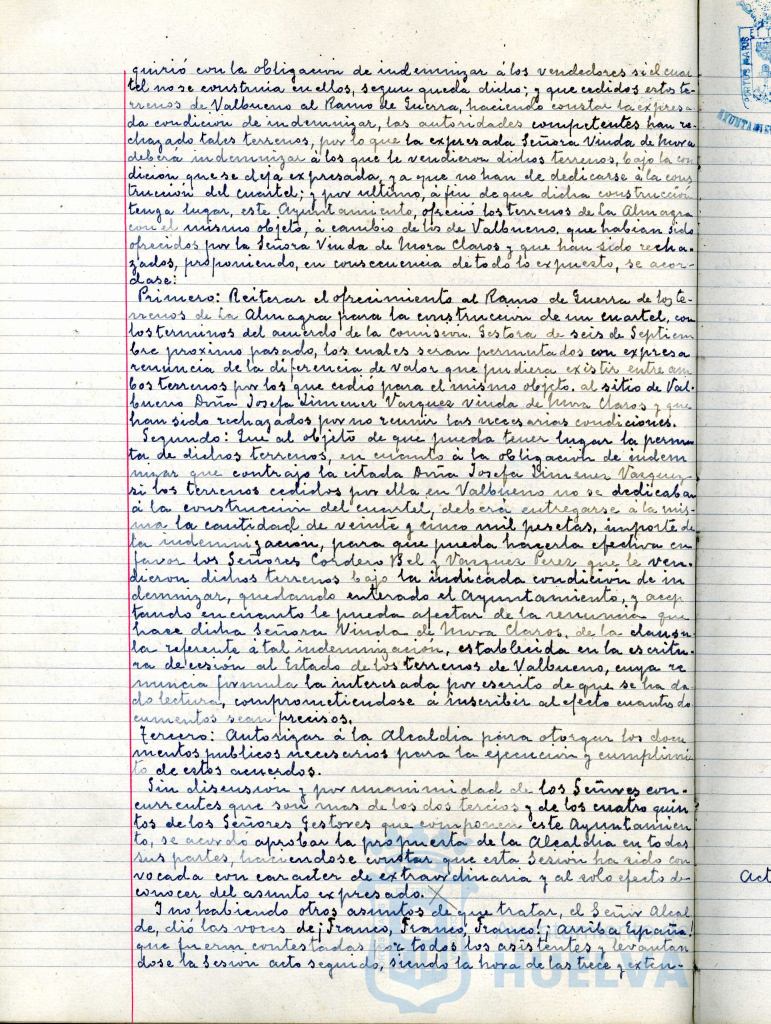 quirió con la obligacion de indemnizar á los vendedores si el cuar-
tel no se construia en ellos, segun queda dicho; y que cedidos estos te-
rrenos de Valbueno al Ramo de Guerra, haciendo constar la expresa-
da condicion de indemnizar, las autoridades competentes han re-
chazado tales terrenos, por lo que la expresada Señora Viuda de Mora
deberá indemnizar á los que le vendieron dichos terrenos, bajo la con
dicion que se deja expresada, ya que no han de dedicarse á la cons
truccion del cuartel; y por ultimo, á fin de que dicha construcción
tenga lugar, este Ayuntamiento, ofreció los terrenos de La Almagra
con el mismo objeto, á cambio de los de Valbueno, que habian sido
ofrecidos por la Señora Viuda de Mora Claros y que han sido recha-
zados, proponiendo, en consecuencia de todo lo expuesto, se acor-
dase:
Primero: Reiterar el ofrecimiento al Ramo de Guerra de los te-
rrenos de La Almagra para la construccion de un cuartel, con
los terminos del acuerdo de la Comisión Gestora de seis de Septiem
bre proximo pasado, los cuales seran permutados con expresa
renuncia de la diferencia de valor que pudiera existir entre am
bos terrenos por los que cedió para el mismo objeto, al sitio de Val-
bueno Doña Josefa Jimenez Vazquez viuda de Mora Claros y que
han sido rechazados por no reunir las necesarias condiciones.
Segundo: Que al objeto de que pueda tener lugar la permu
ta de dichos terrenos, en cuanto á la obligacion de indem
nizar que contrajo la citada Doña Josefa Jimenez Vazquez
si los terrenos cedidos por ella en Valbueno no se dedicaban
á la construccion del cuartel, deberá entregarse á la mis-
ma la cantidad de veinte y cinco mil pesetas, importe de
la indemnización, para que pueda hacerla efectiva en
favor los Señores Cordero Bel y Vazquez Perez que le ven-
dieron dichos terrenos bajo la indicada condicion de in
demnizar, quedando enterado el Ayuntamiento, y acep
tando en cuanto le pueda afectar de la renuncia que
hace dicha Señora Viuda de Mora Claros, de la clausu
la referente á tal indemnización, establecida en la escritu-
ra de cesión al Estado de los terrenos de Valbueno, cuya re
nuncia formula la interesada por escrito de que se ha da-
do lectura, comprometiendose á inscribir al efecto cuantos do
cumentos sean precisos.
Tercero: Autorizar á la Alcaldia para otorgar los docu
mentos publicos necesarios para la ejecucion y cumplimien
to de estos acuerdos.
Sin discusion y por unanimidad de los Señores con-
currentes que son mas de los dos tercios y de los cuatro quin
tos de los Señores Gestores que componen este Ayuntamien
to, se acordó aprobar la propuesta de la Alcaldia en todas
sus partes, haciendose constar que esta Sesion ha sido con
vocada con caracter de extraordinaria y al solo efecto de
conocer del asunto expresado.
Y no habiendo otros asuntos de que tratar, el Señor Alcal
de, dió las voces de ¡Franco, Franco, Franco! ¡Arriba España!
que fueron contestadas por todos los asistentes y levantan
dose la Sesion acto seguido, siendo la hora de las trece y exten-
Act
HUELVA